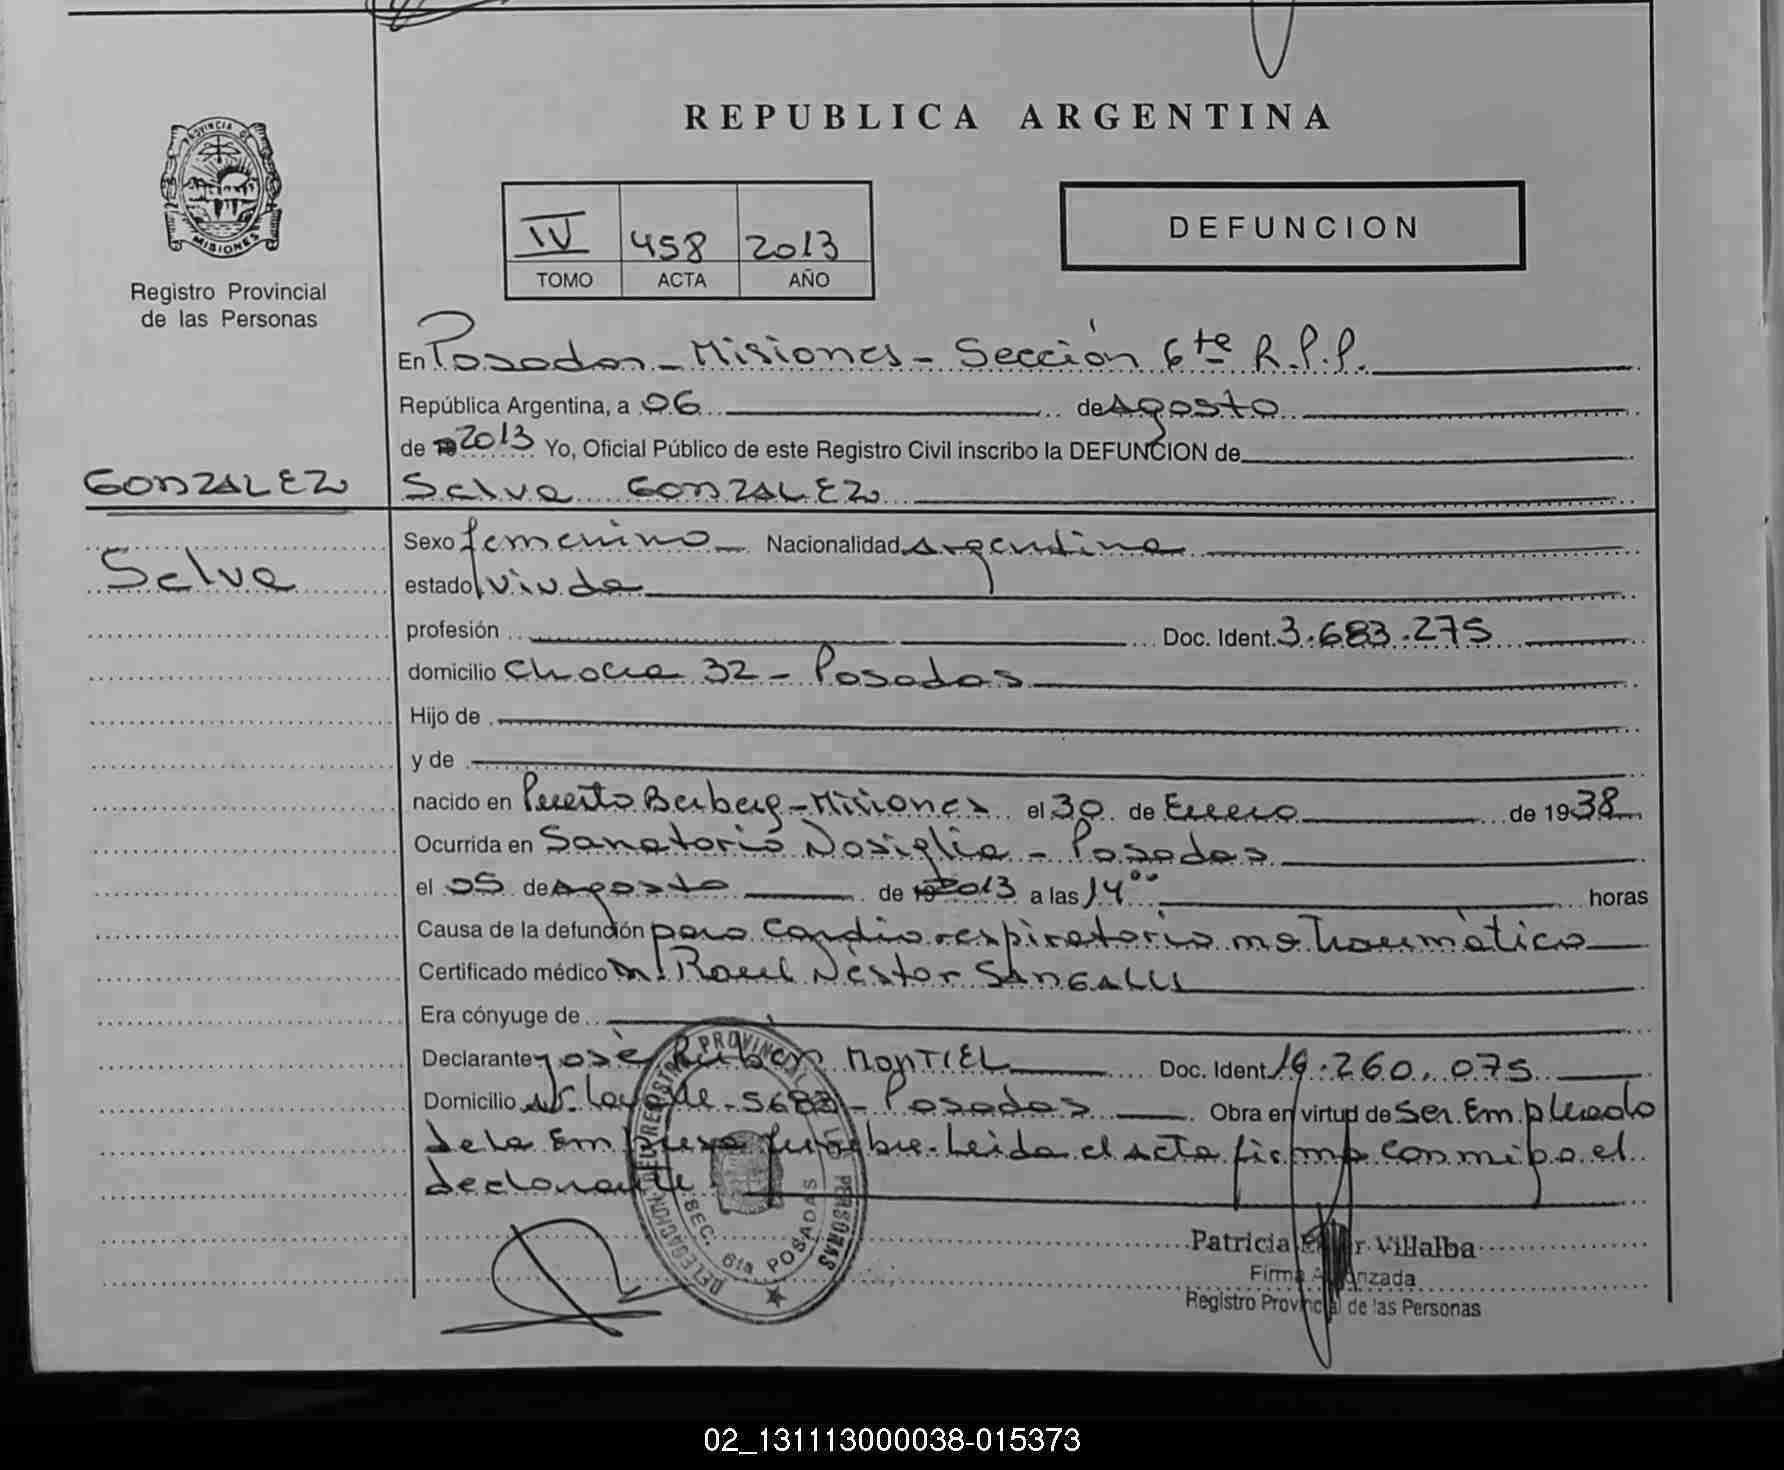 REPUBLICA ARGENTINA
PROVINCIA DE MISIONES
Registro Provincial
de las Personas
IV 458 2013
TOMO ACTA AÑO
DEFUNCION
En Posadas - Misiones - Sección 6te R.P.P.
República Argentina, a 06 de Agosto
de 2013 Yo, Oficial Público de este Registro Civil inscribo la DEFUNCION de
GONZALEZ
Selva GONZALEZ
Selva
Sexo femenino Nacionalidad Argentina
estado viuda
profesión Doc. Ident. 3.683.275
domicilio 32 - Posadas
Hijo de
y de
nacido en Puerto - Misiones el 30 de Enero de 1938
Ocurrida en Sanatorio Nosiglia - Posadas
el 05 de Agosto de 2013 a las 14 00 horas
Causa de la defunción paro cardio respiratorio no traumático
Certificado médico Raul Néstor SANGALLI
Era cónyuge de
Declarante José Rubén MONTIEL Doc. Ident. 260.075
Domicilio - Posadas Obra en virtud de ser Empleado
de la Empresa fúnebre. Leida el acta firma conmigo el
declarante
DELEGACION DEL REGISTRO PROVINCIAL DE LAS PERSONAS
SEC. 6ta POSADAS
Patricia Villalba
Firma Autorizada
Registro Provincial de las Personas
02_131113000038-015373